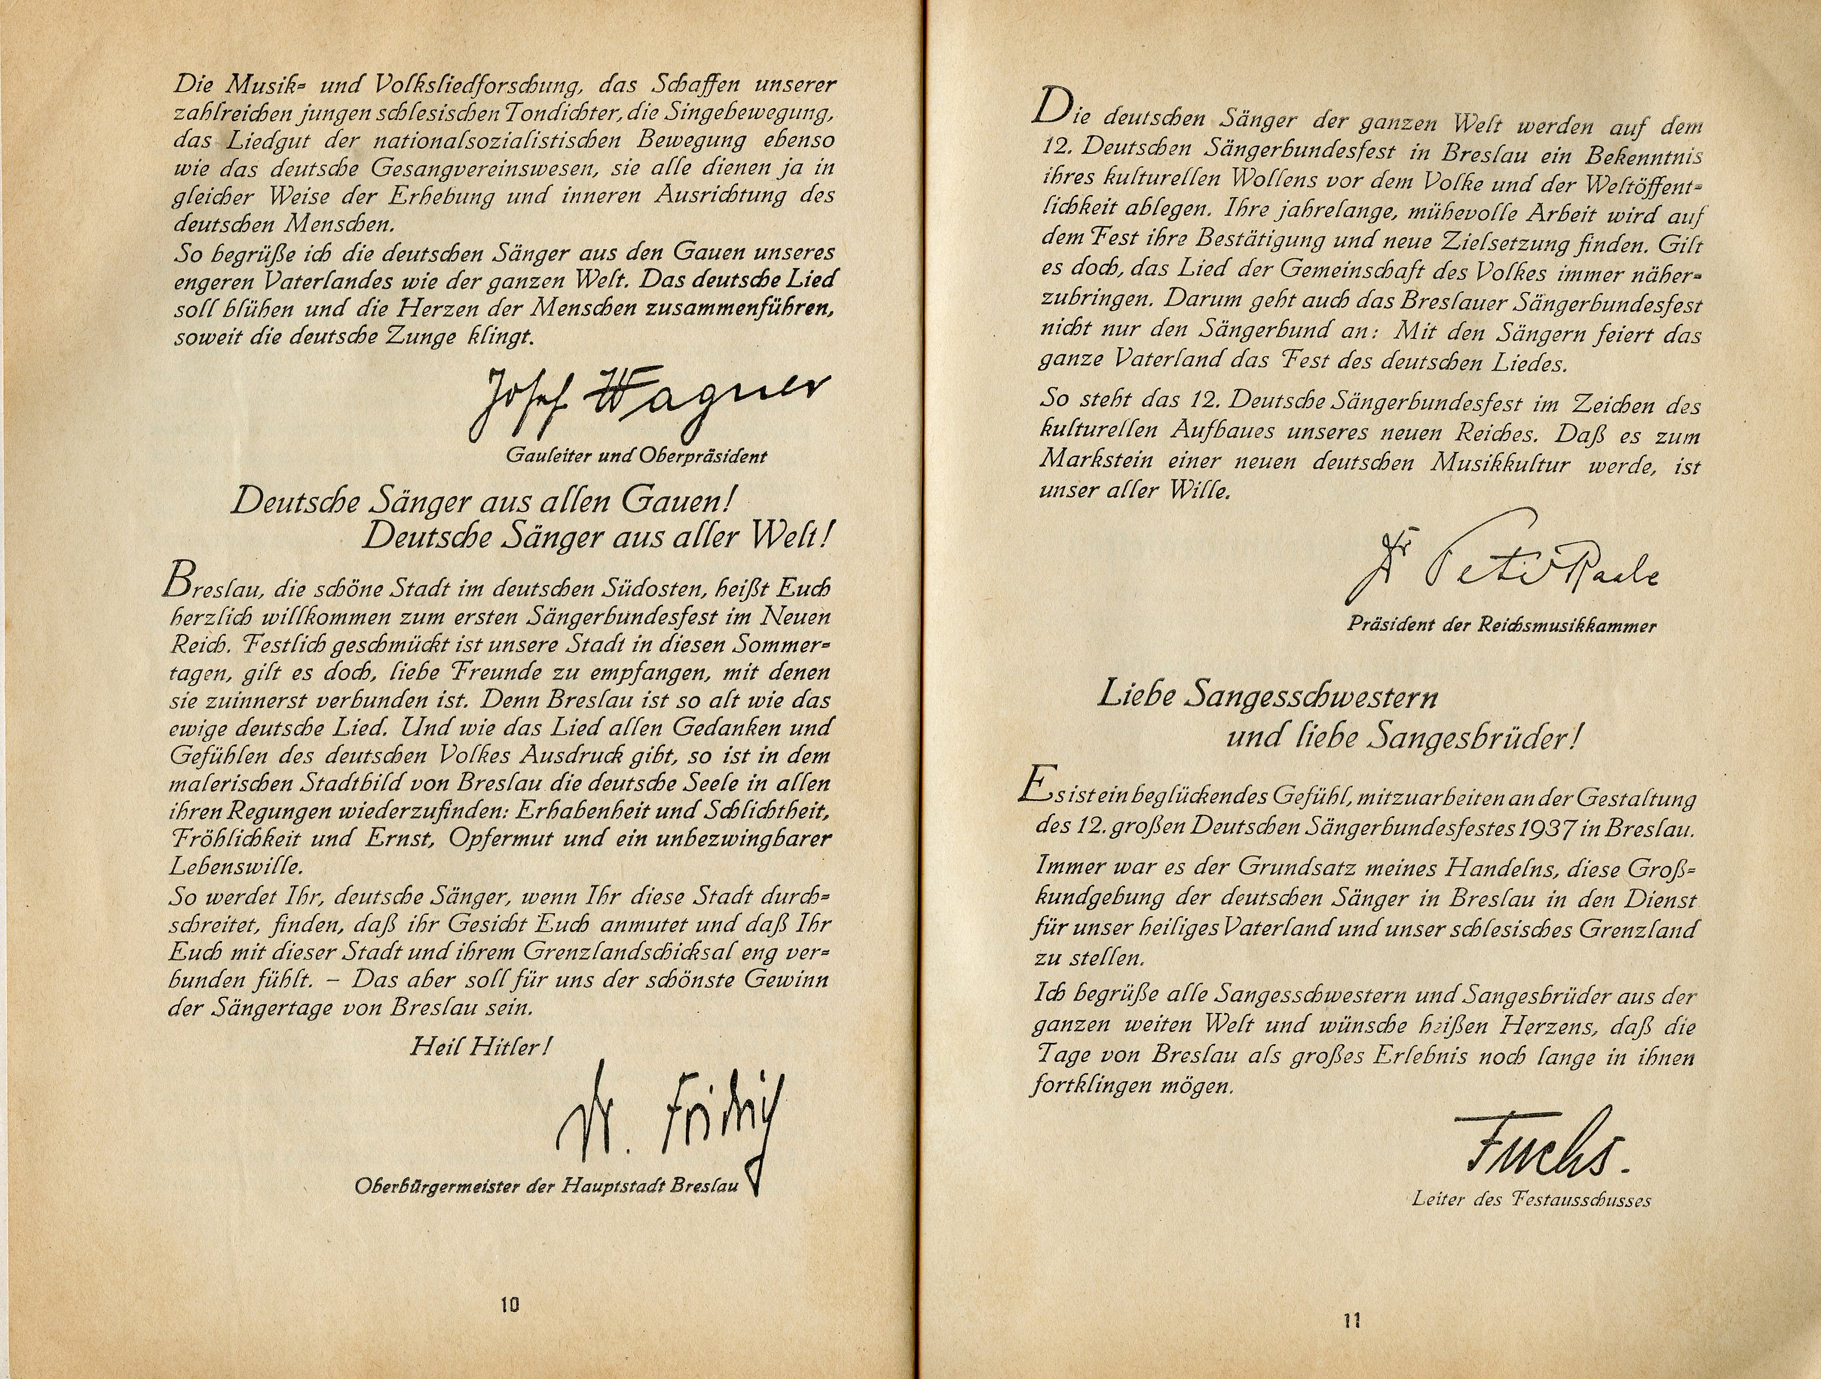 Die Musik- und Volksliedforschung, das Schaffen unserer
zahlreichen jungen schlesischen Tondichter, die Singebewegung,
das Liedgut der nationalsozialistischen Bewegung ebenso
wie das deutsche Gesangvereinswesen, sie alle dienen ja in
gleicher Weise der Erhebung und inneren Ausrichtung des
deutschen Menschen.
So begrüße ich die deutschen Sänger aus den Gauen unseres
engeren Vaterlandes wie der ganzen Welt. Das deutsche Lied
soll blühen und die Herzen der Menschen zusammenführen,
soweit die deutsche Zunge klingt.
Josef Wagner
Gauleiter und Oberpräsident
Deutsche Sänger aus allen Gauen!
Deutsche Sänger aus aller Welt!
Breslau, die schöne Stadt im deutschen Südosten, heißt Euch
herzlich willkommen zum ersten Sängerbundesfest im Neuen
Reich. Festlich geschmückt ist unsere Stadt in diesen Sommer-
tagen, gilt es doch, liebe Freunde zu empfangen, mit denen
sie zuinnerst verbunden ist. Denn Breslau ist so alt wie das
ewige deutsche Lied. Und wie das Lied allen Gedanken und
Gefühlen des deutschen Volkes Ausdruck gibt, so ist in dem
malerischen Stadtbild von Breslau die deutsche Seele in allen
ihren Regungen wiederzufinden: Erhabenheit und Schlichtheit,
Fröhlichkeit und Ernst, Opfermut und ein unbezwingbarer
Lebenswille.
So werdet Ihr, deutsche Sänger, wenn Ihr diese Stadt durch-
schreitet, finden, daß ihr Gesicht Euch anmutet und daß Ihr
Euch mit dieser Stadt und ihrem Grenzlandschicksal eng ver-
bunden fühlt. – Das aber soll für uns der schönste Gewinn
der Sängertage von Breslau sein.
Heil Hitler!
Dr. Fridrich
Oberbürgermeister der Hauptstadt Breslau
10
Die deutschen Sänger der ganzen Welt werden auf dem
12. Deutschen Sängerbundesfest in Breslau ein Bekenntnis
ihres kulturellen Wollens vor dem Volke und der Weltöffent-
lichkeit ablegen. Ihre jahrelange, mühevolle Arbeit wird auf
dem Fest ihre Bestätigung und neue Zielsetzung finden. Gilt
es doch, das Lied der Gemeinschaft des Volkes immer näher-
zubringen. Darum geht auch das Breslauer Sängerbundesfest
nicht nur den Sängerbund an: Mit den Sängern feiert das
ganze Vaterland das Fest des deutschen Liedes.
So steht das 12. Deutsche Sängerbundesfest im Zeichen des
kulturellen Aufbaues unseres neuen Reiches. Daß es zum
Markstein einer neuen deutschen Musikkultur werde, ist
unser aller Wille.
Dr Peter Raabe
Präsident der Reichsmusikkammer
Liebe Sangesschwestern
und liebe Sangesbrüder!
Es ist ein beglückendes Gefühl, mitzuarbeiten an der Gestaltung
des 12. großen Deutschen Sängerbundesfestes 1937 in Breslau.
Immer war es der Grundsatz meines Handelns, diese Groß-
kundgebung der deutschen Sänger in Breslau in den Dienst
für unser heiliges Vaterland und unser schlesisches Grenzland
zu stellen.
Ich begrüße alle Sangesschwestern und Sangesbrüder aus der
ganzen weiten Welt und wünsche heißen Herzens, daß die
Tage von Breslau als großes Erlebnis noch lange in ihnen
fortklingen mögen.
Fuchs.
Leiter des Festausschusses
11